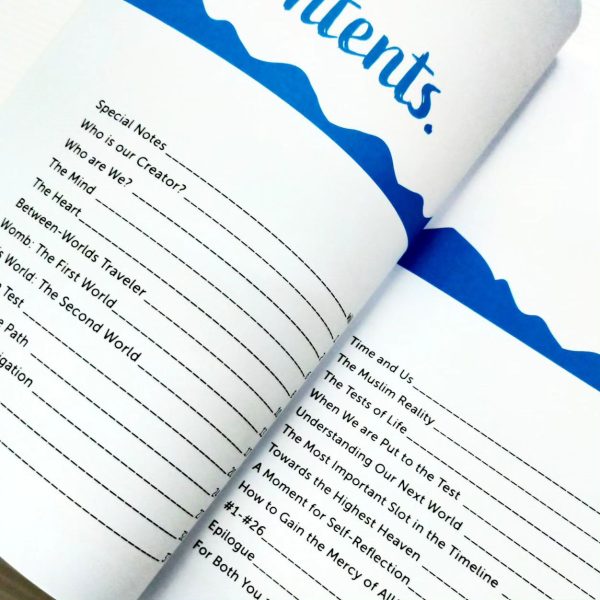 ntents.
Special Notes
Who is our Creator?
Who are We?
The Mind
The Heart
Between-Worlds Traveler
Womb: The First World
s World: The Second World
Test
Path
igation
Time and Us
The Muslim Reality
The Tests of Life
When We are Put to the Test
Understanding Our Next World
The Most Important Slot in the Timeline
Towards the Highest Heaven
A Moment for Self-Reflection
How to Gain the Mercy of All
#1-#26
Epilogue
For Both You